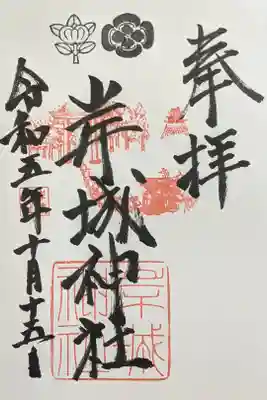 奉拝
岸城神社
令和五年十月十五日
岸城
神社